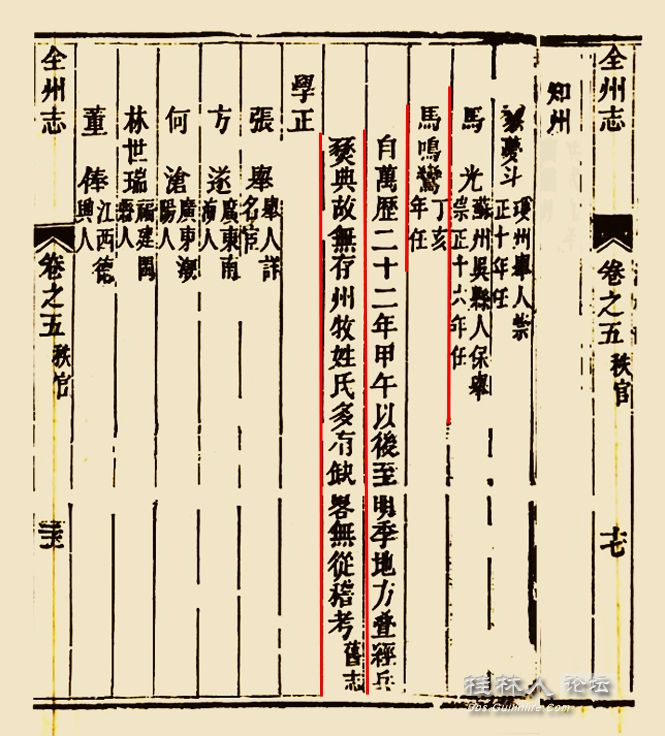 全州志 卷之五 秩官 十七
知州
夢斗 瓊州舉人崇
正十年任
馬光 蘇州吳縣人保舉
崇正十六年任
馬鳴鸞 丁亥
年任
自萬歷二十二年甲午以後至明季地方疊經兵
燹典故無存州牧姓氏多有缺畧無從稽考 舊志
學正
張舉 舉人詳
名宦
方遂 廣東南
海人
何滄 廣東潮
陽人
林世瑞 福建閩
縣人
董俸 江西德
興人
全州志 卷之五 秩官
桂林人论坛
Bbs.Guilinlife.Com